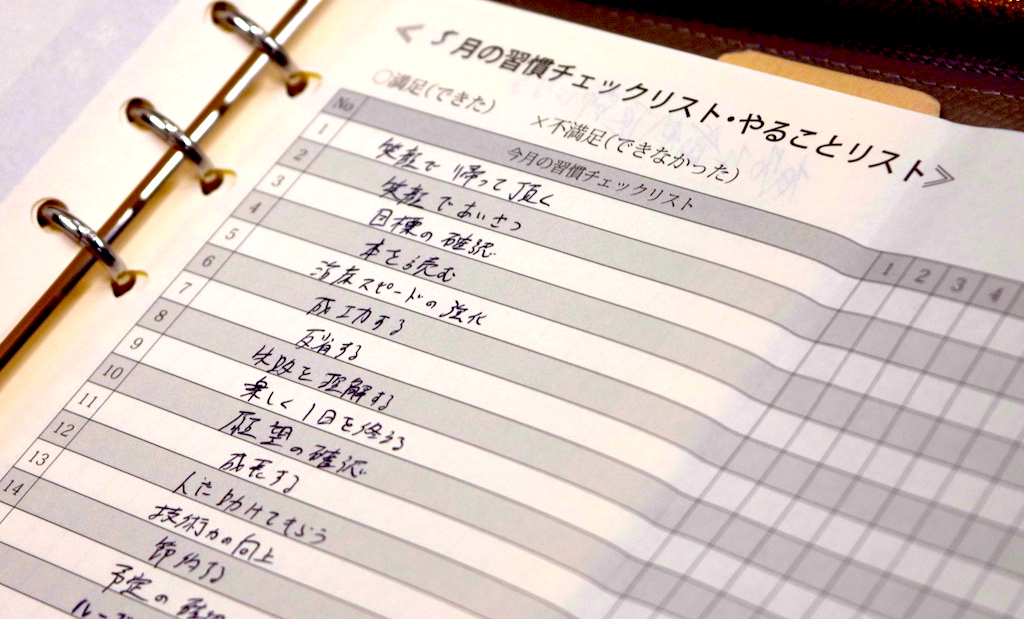 ≪5月の習慣チェックリスト・やることリスト≫
○満足(できた)　×不満足(できなかった)
No 今月の習慣チェックリスト 1 2 3 4
1 笑顔で帰って頂く
2 笑顔であいさつ
3 目標の確認
4 本を読む
5 治床スピードの強化
6 成功する
7 反省する
8 失敗を理解する
9 楽しく1日を終える
10 願望の確認
11 成長する
12 人に助けてもらう
13 技術力の向上
14 節約する
予定の確認